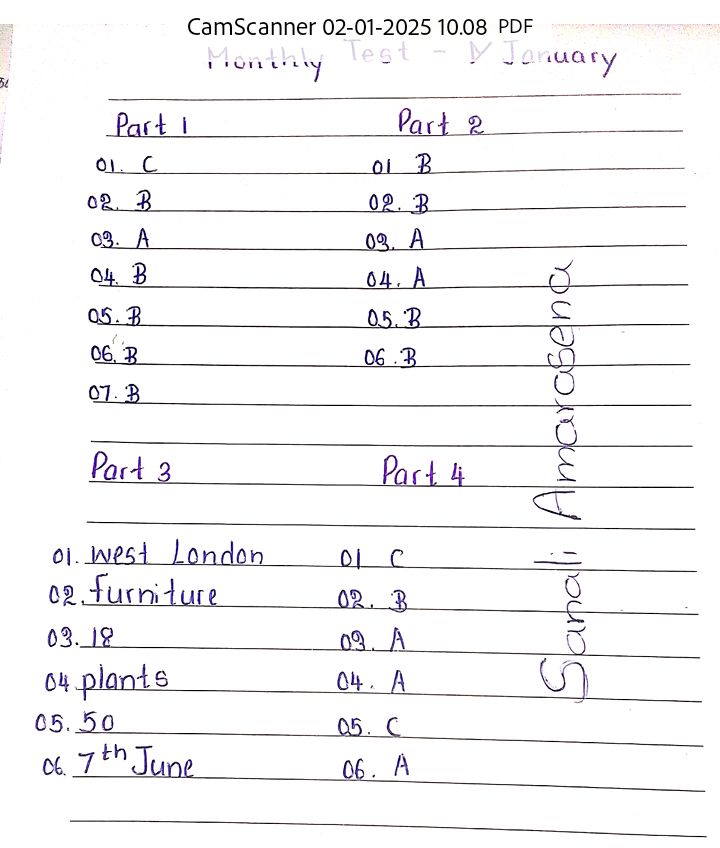 CamScanner 02-01-2025 10.08 PDF
Monthly Test - January
Part 1
01. C
02. B
03. A
04. B
05. B
06. B
07. B
Part 2
01 B
02. B
03. A
04. A
05. B
06. B
Part 3
01. west London
02. furniture
03. 18
04 plants
05. 50
06. 7th June
Part 4
01 C
02. B
03. A
04. A
05. C
06. A
Sanali Amarasena